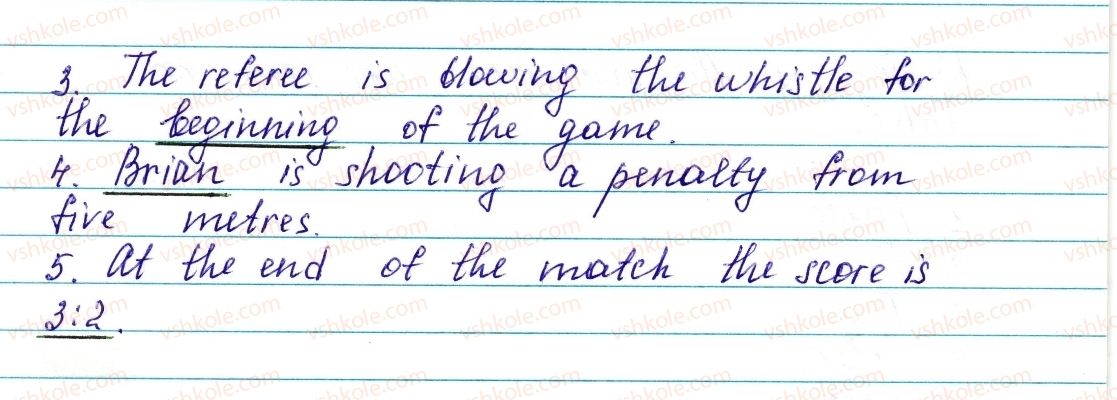 3. The referee is blowing the whistle for
the beginning of the game.
4. Brian is shooting a penalty from
five metres.
5. At the end of the match the score is
3:2.